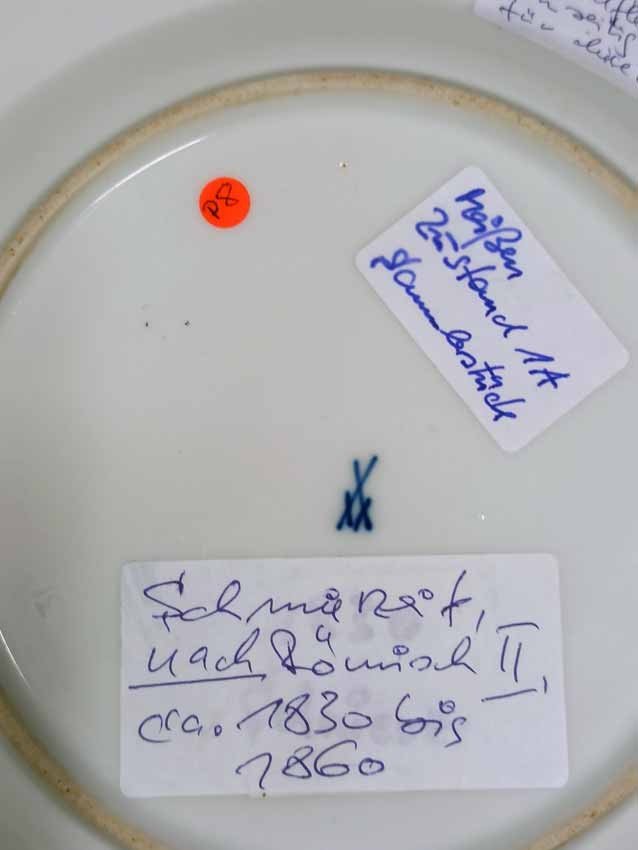 für
P8
Meißen
Zustand 1A
Sammlerstück
nach Römisch II,
ca. 1830 bis
1860